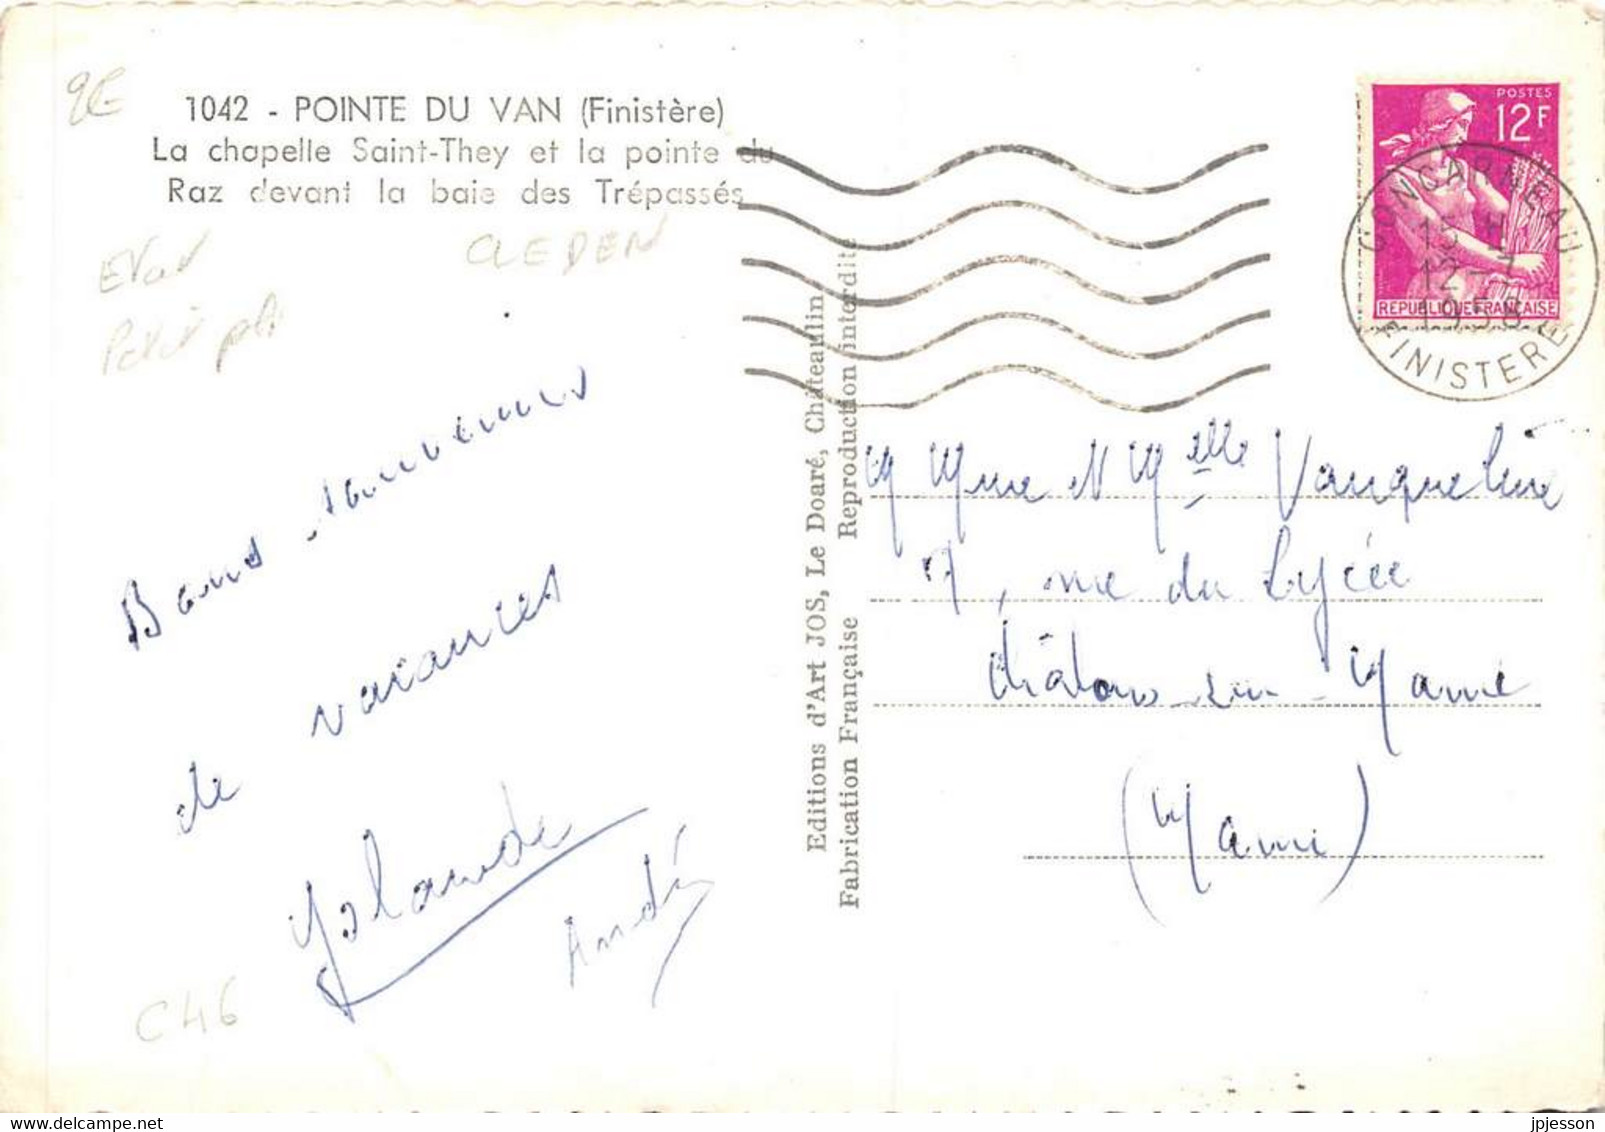 2€
1042 - POINTE DU VAN (Finistère)
La chapelle Saint-They et la pointe du
Raz devant la baie des Trépassés
CLEDEN
Etat
Petit pli
Bons souvenirs
de vacances
Yolande
André
C46
Editions d'Art JOS, Le Doaré, Châteaulin
Fabrication Française Reproduction interdite
POSTES
12F
REPUBLIQUE FRANÇAISE
CONCARNEAU
15 H
12-7
1958
FINISTERE
M Mme et Melle Vauquelin
7, rue du Lycée
Châlons-sur-Marne
(Marne)
delcampe.net
jpjesson